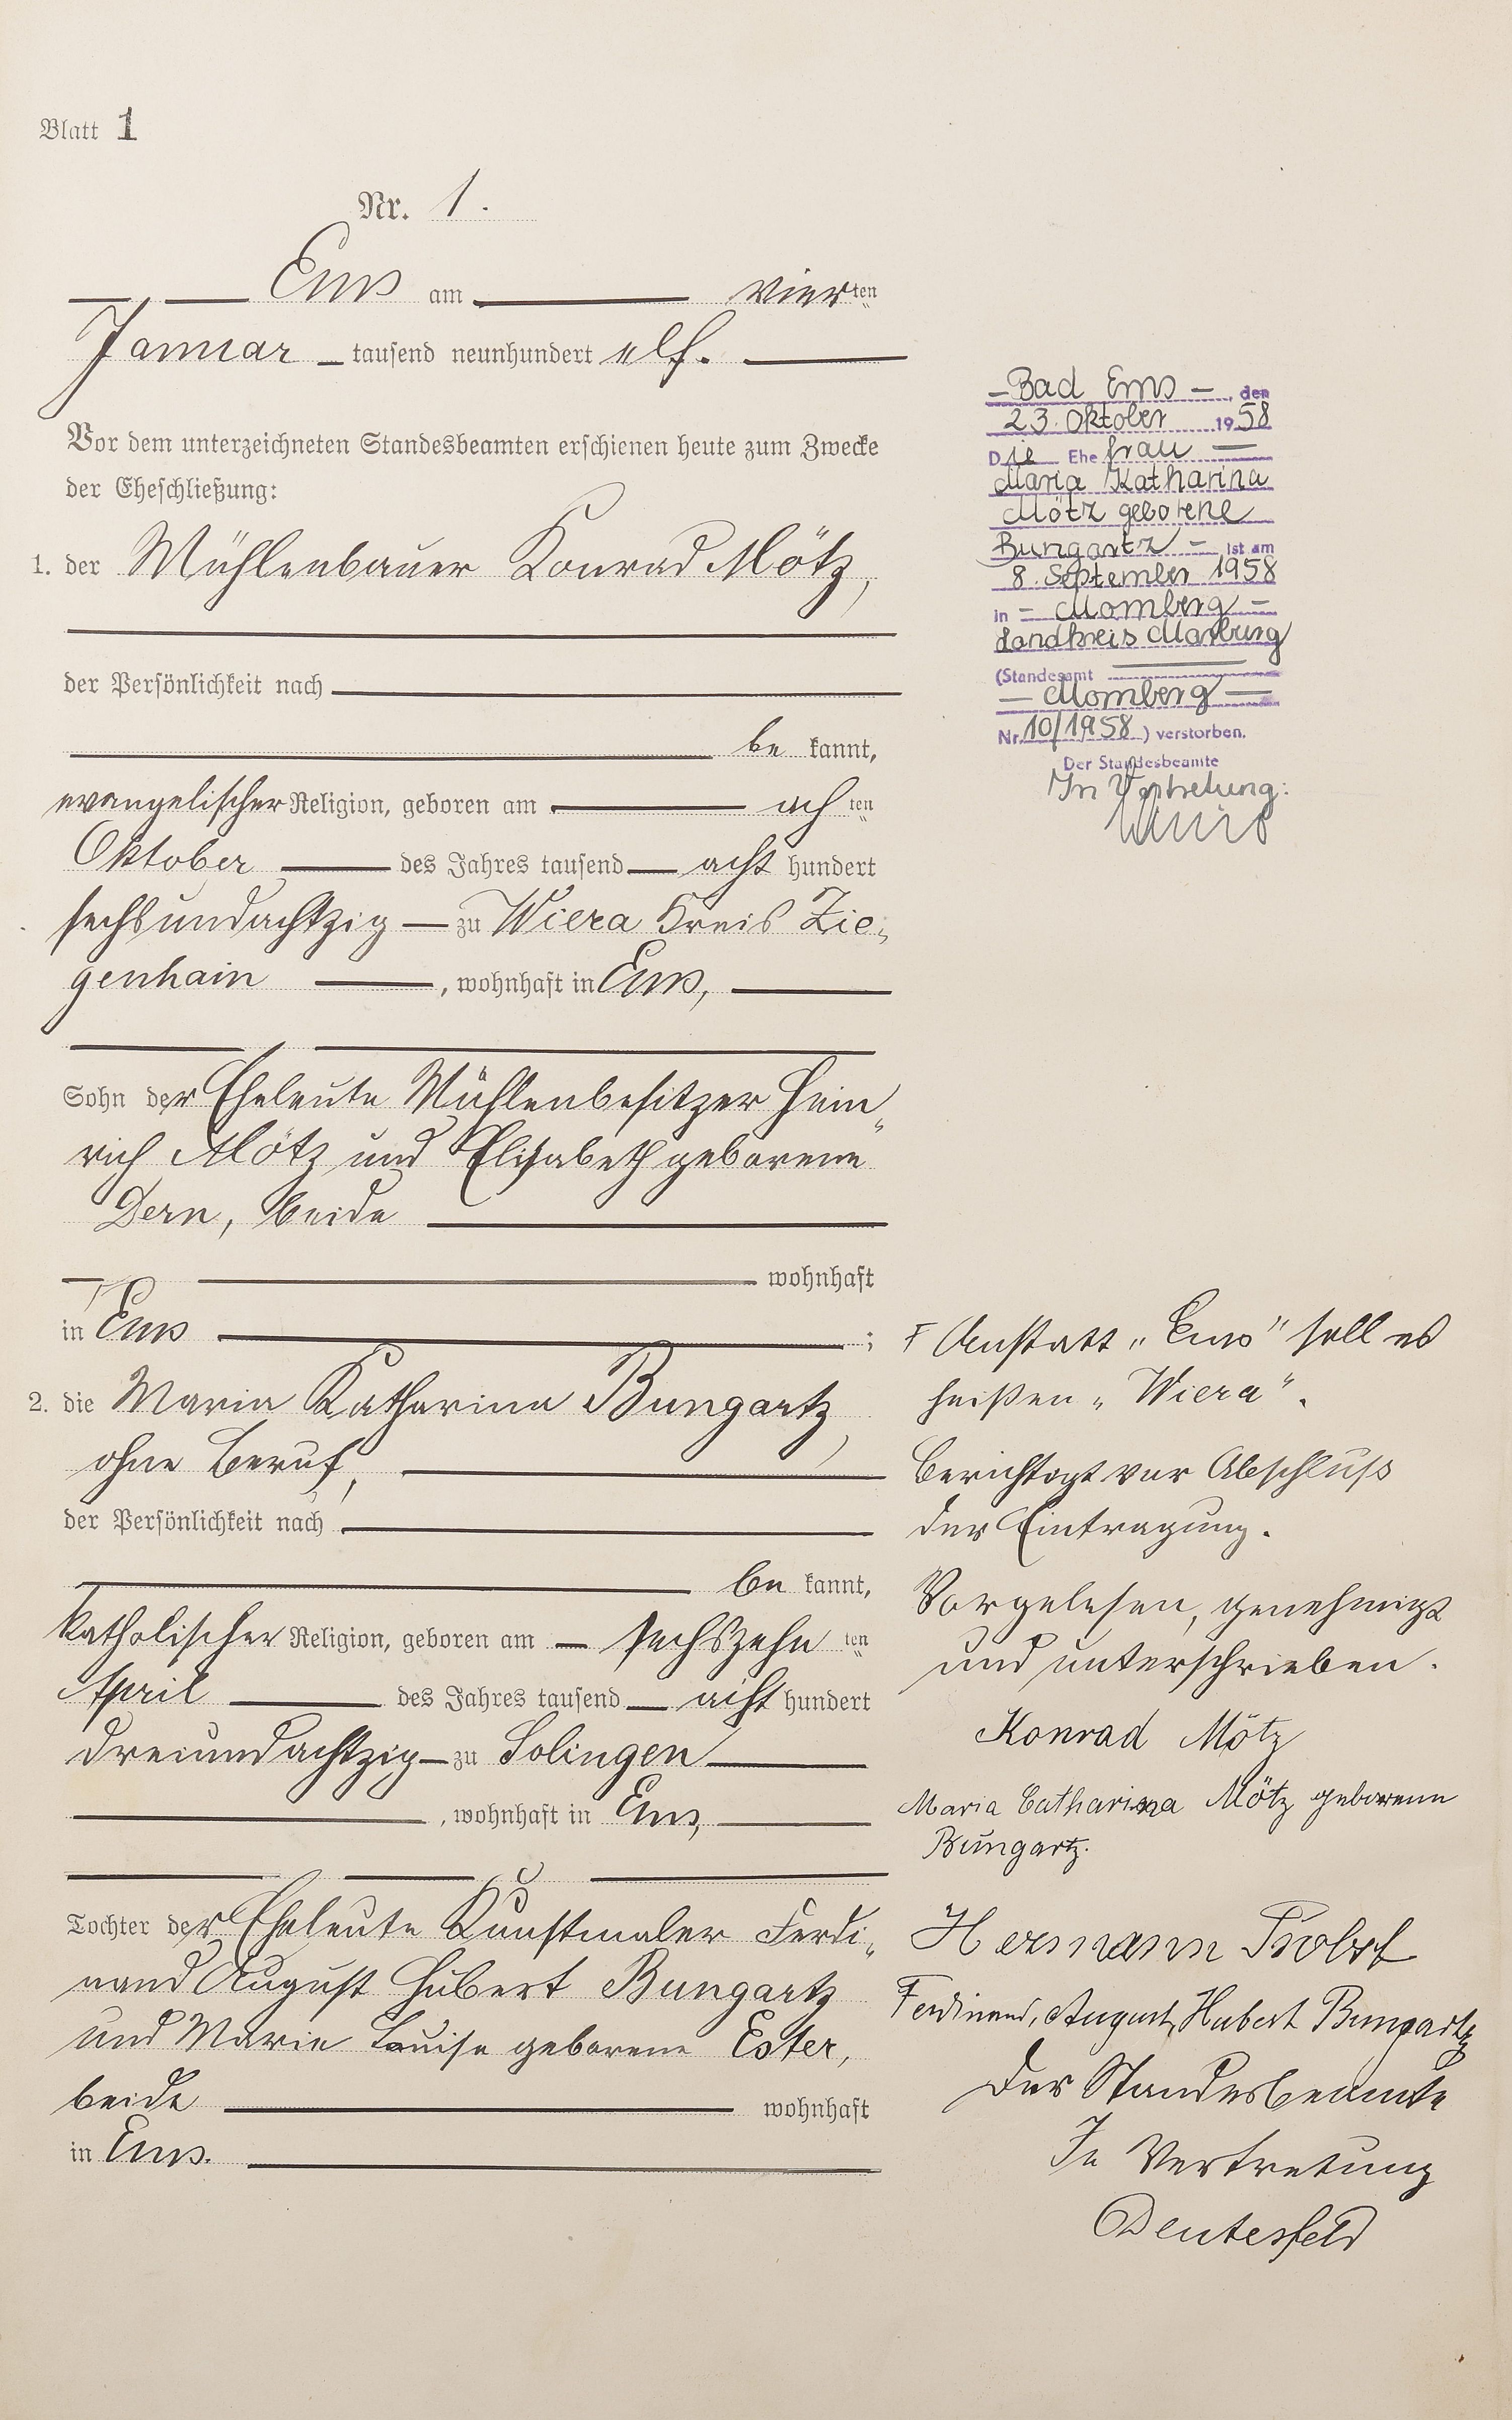 Blatt 1
Nr. 1.
Ems am vierten
Januar tausend neunhundert elf.
Vor dem unterzeichneten Standesbeamten erschienen heute zum Zwecke
der Eheschließung:
1. der Mühlenbauer Konrad Mötz,
der Persönlichkeit nach
be kannt,
evangelischer Religion, geboren am achten
Oktober des Jahres tausend acht hundert
sechsundachtzig zu Wiera Kreis Zie-
genhain, wohnhaft in Ems,
Sohn der Eheleute Mühlenbesitzer Hein-
rich Mötz und Elisabeth geborene
Dern, beide
wohnhaft
in Ems ;
2. die Maria Katharina Bungartz,
ohne Beruf,
der Persönlichkeit nach
be kannt,
katholischer Religion, geboren am sechszehnten
April des Jahres tausend acht hundert
dreiundachtzig zu Solingen
, wohnhaft in Ems,
Tochter der Eheleute Kunstmaler Ferdi-
nand August Hubert Bungartz
und Marie Louise geborene Ester,
beide wohnhaft
in Ems.
– Bad Ems – , den
23. Oktober 1958
Die Ehefrau –
Maria Katharina
Mötz geborene
Bungartz – ist am
8. September 1958
in – Momberg –
Landkreis Marburg
(Standesamt
– Momberg –
Nr. 10/1958 ) verstorben.
Der Standesbeamte
In Vertretung:
Anstatt „Ems" soll es
heißen „Wiera".
Berichtigt vor Abschluß
der Eintragung.
Vorgelesen, genehmigt
und unterschrieben.
Konrad Mötz
Maria Catharina Mötz geborene
Bungartz.
Hermann
Ferdinand, August, Hubert Bungartz
Der Standesbeamte
In Vertretung